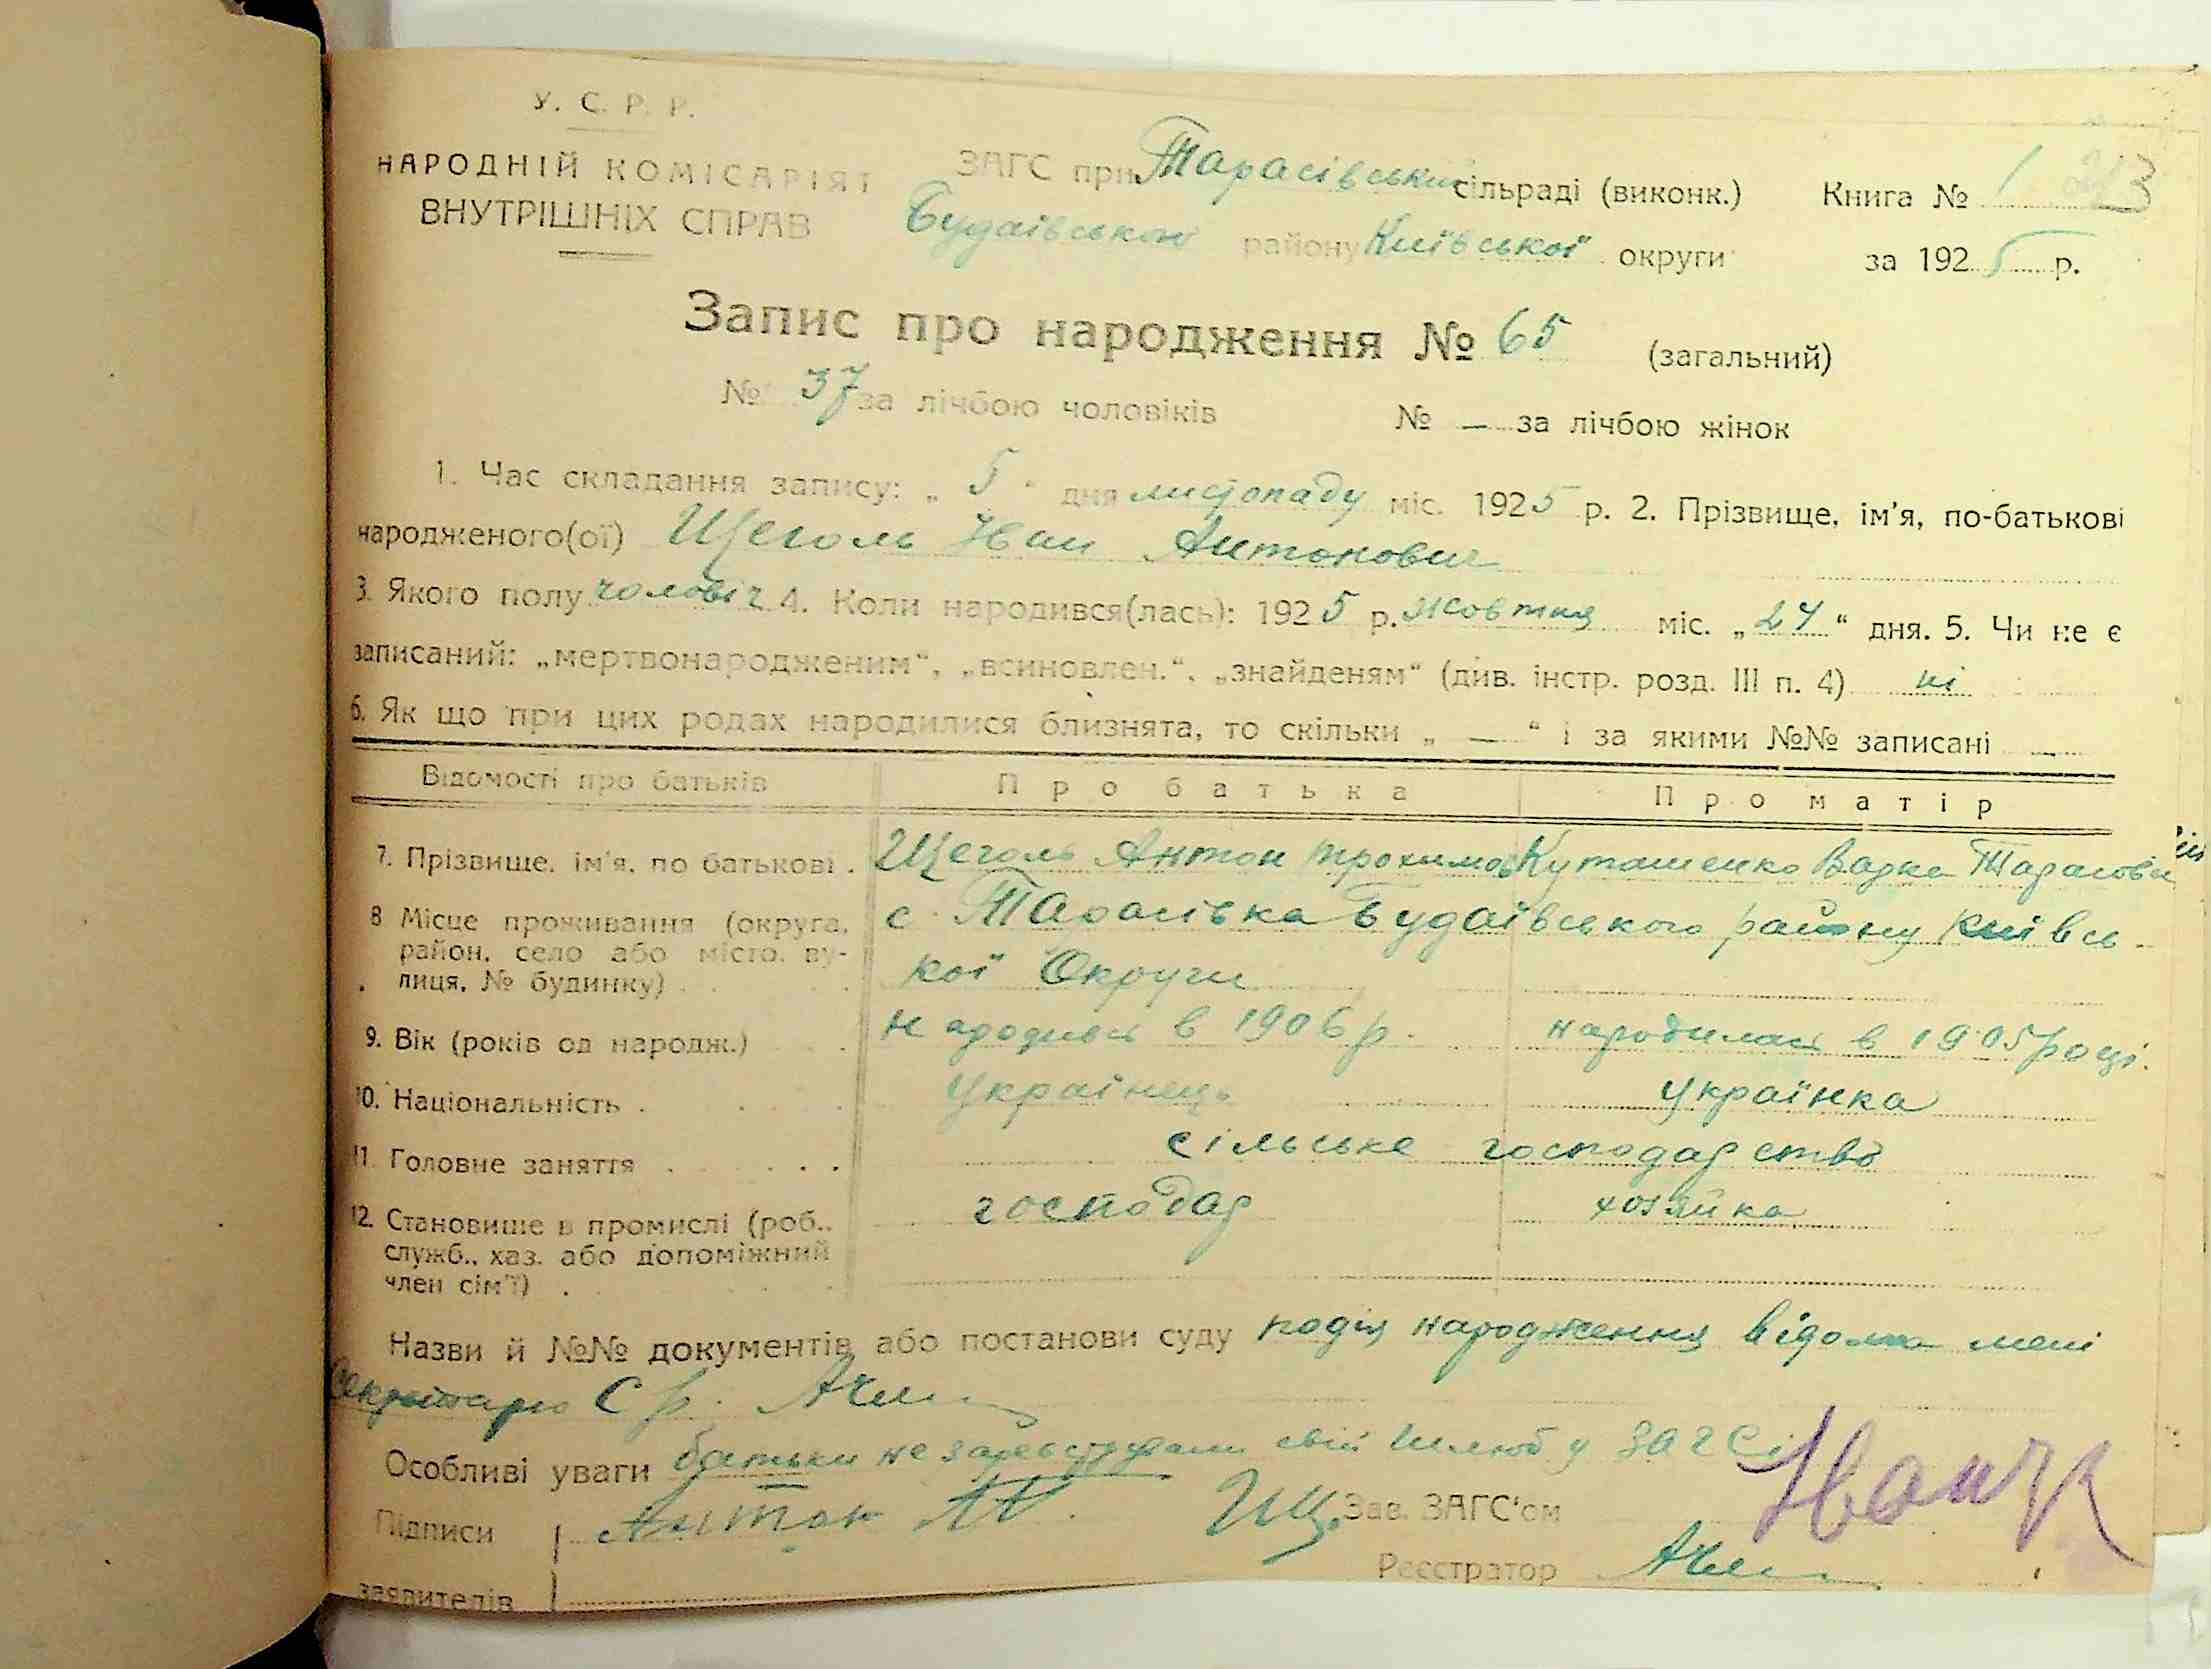 У. С. Р. Р.
НАРОДНІЙ КОМІСАРІЯТ
ВНУТРІШНІХ СПРАВ
ЗАГС при Тарасівський сільраді (виконк.) Книга № 1
Будаївського району Київської округи за 1925 р.
Запис про народження № 65 (загальний)
№ 37 за лічбою чоловіків № — за лічбою жінок
1. Час складання запису: „ 5 “ дня листопаду міс. 1925 р. 2. Прізвище, ім'я, по-батькові
народженого(ої) Щеголь Иван Антонович
3. Якого полу чоловіч 4. Коли народився(лась): 1925 р. жовтня міс. „24“ дня. 5. Чи не є
записаний: „мертвонародженим“, „всиновлен.“, „знайденям“ (див. інстр. розд. III п. 4) ні
6. Як що при цих родах народилися близнята, то скільки „ — “ і за якими №№ записані —
Відомості про батьків Про батька Про матір
7. Прізвище, ім'я, по батькові . Щеголь Антон Трохимов Куташенко Варка Тарасовна
8 Місце проживання (округа, с. Тарасівка Будаївського району Київсь-
район, село або місто, ву-
лиця, № будинку) . кої Округи
9. Вік (років од народж.) народивсь в 1906 р. народилась в 1905 році.
10. Національність . Українець Українка
11. Головне заняття . сільське господарство
12. Становище в промислі (роб., господар хозяйка
служб., хаз. або допоміжний
член сім'ї) .
Назви й №№ документів або постанови суду подія народження відома мені
Секретарю С р.
Особливі уваги батьки не зареєстрували свій шлюб у ЗАГСі
Підписи Антон Щ. Зав. ЗАГС'ом
заявителів Реєстратор